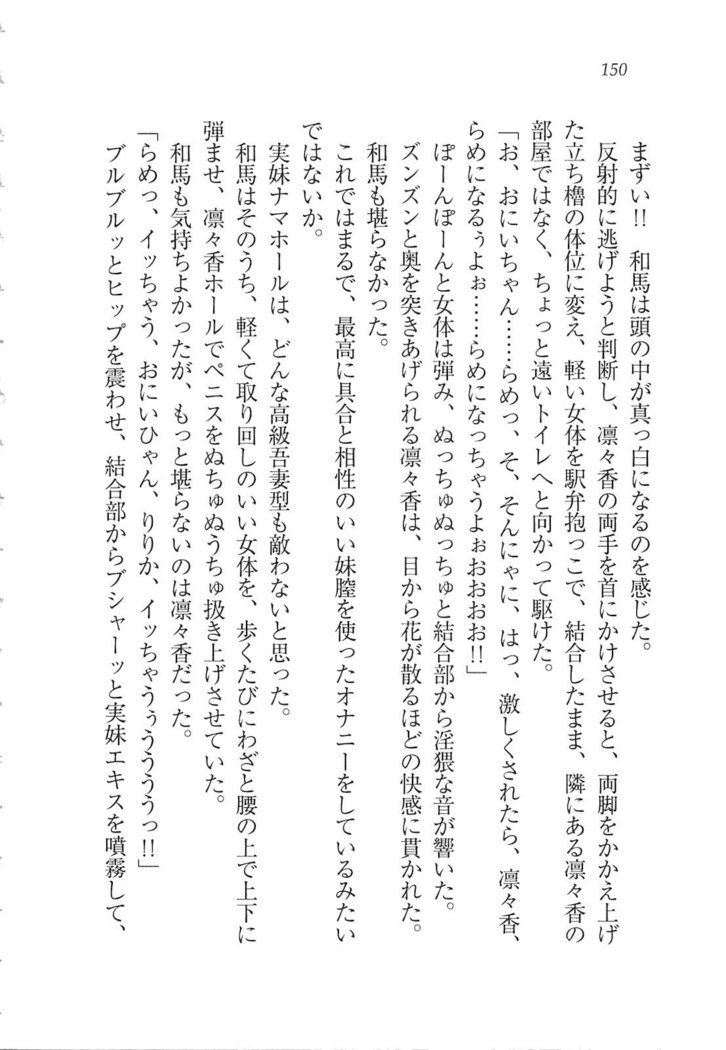 150
まずい!! 和馬は頭の中が真っ白になるのを感じた。
反射的に逃げようと判断し、凛々香の両手を首にかけさせると、両脚をかかえ上げ
た立ち櫓の体位に変え、軽い女体を駅弁抱っこで、結合したまま、隣にある凛々香の
部屋ではなく、ちょっと遠いトイレへと向かって駆けた。
「お、おにいちゃん……らめっ、そ、そんにゃに、はっ、激しくされたら、凛々香、
らめになるぅよぉ……らめになっちゃうよぉおおおお!!」
ぽーんぽーんと女体は弾み、ぬっちゅぬっちゅと結合部から淫猥な音が響いた。
ズンズンと奥を突きあげられる凛々香は、目から花が散るほどの快感に貫かれた。
和馬も堪らなかった。
これではまるで、最高に具合と相性のいい妹膣を使ったオナニーをしているみたい
ではないか。
実妹ナマホールは、どんな高級吾妻型も敵わないと思った。
和馬はそのうち、軽くて取り回しのいい女体を、歩くたびにわざと腰の上で上下に
弾ませ、凛々香ホールでペニスをぬちゅぬうちゅ扱き上げさせていた。
和馬も気持ちよかったが、もっと堪らないのは凛々香だった。
「らめっ、イッちゃう、おにいひゃん、りりか、イッちゃうぅうううっ!!」
ブルブルッとヒップを震わせ、結合部からブシャーッと実妹エキスを噴霧して、